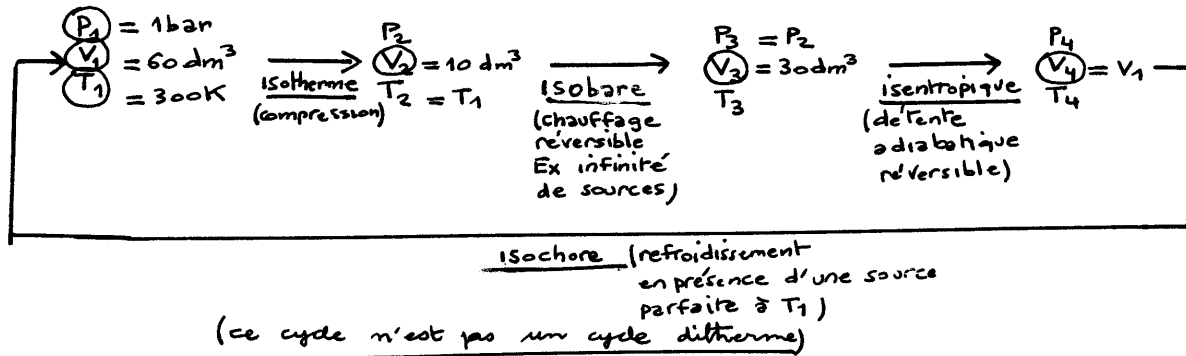 P1 = 1bar
V1 = 60 dm³
T1 = 300K
isotherme
(compression)
P2
V2 = 10 dm³
T2 = T1
isobare
(chauffage
réversible
Ex infinité
de sources)
P3 = P2
V3 = 30dm³
T3
isentropique
(détente
adiabatique
réversible)
P4
V4 = V1
T4
isochore (refroidissement
en présence d'une source
parfaite à T1)
(ce cycle n'est pas un cycle ditherme)